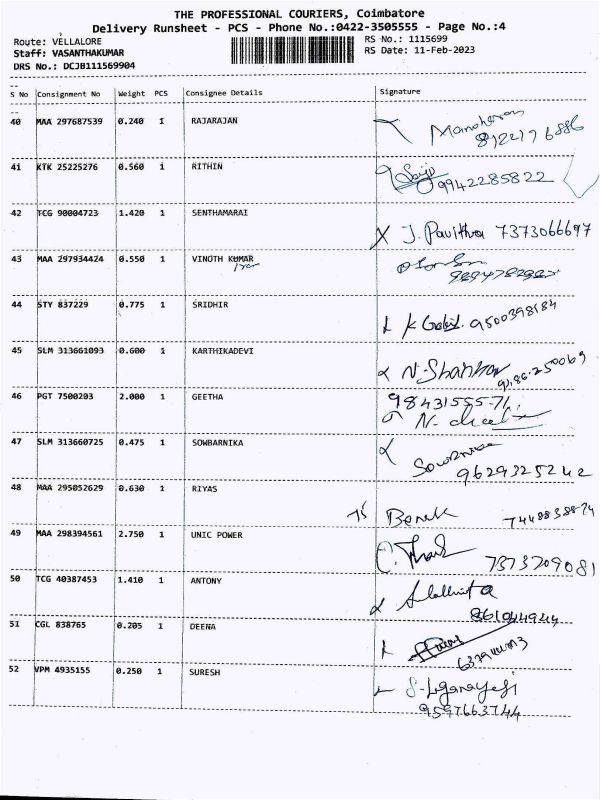 THE PROFESSIONAL COURIERS, Coimbatore
Delivery Runsheet - PCS - Phone No.:0422-3505555 - Page No.:4
Route: VELLALORE RS No.: 1115699
Staff: VASANTHAKUMAR RS Date: 11-Feb-2023
DRS No.: DCJB111569904
S No Consignment No Weight PCS Consignee Details Signature
40 MAA 297687539 0.240 1 RAJARAJAN
41 KTK 25225276 0.560 1 RITHIN
9942285822
42 TCG 90004723 1.420 1 SENTHAMARAI
X J. Pavithra 7373066697
43 MAA 297934424 0.550 1 VINOTH KUMAR
44 STY 837229 0.775 1 SRIDHIR
9500398184
45 SLM 313661093 0.600 1 KARTHIKADEVI
46 PGT 7500203 2.000 1 GEETHA
98431555-71
47 SLM 313660725 0.475 1 SOWBARNIKA
9629325242
48 MAA 295052629 0.630 1 RIYAS
49 MAA 298394561 2.750 1 UNIC POWER
7373209081
50 TCG 40387453 1.410 1 ANTONY
51 CGL 838765 0.205 1 DEENA
52 VPM 4935155 0.250 1 SURESH
9597663744